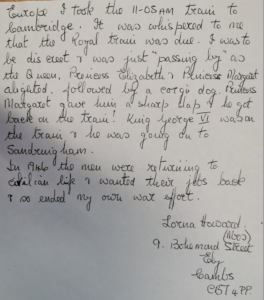 Europe I took the 11-05 AM train to
Cambridge. It was whispered to me
that the Royal train was due. I was to
be discreet & was just passing by as
the Queen, Princess Elizabeth & Princess Margaret
alighted, followed by a corgi dog. Princess
Margaret gave him a sharp slap & he got
back on the train! King George VI was on
the train & he was going on to
Sandringham.
In 1946 the men were returning to
civilian life & wanted their jobs back
& so ended my own war effort.
Lorna Howard
(Mrs)
9. Bohemond Street
Ely
Cambs